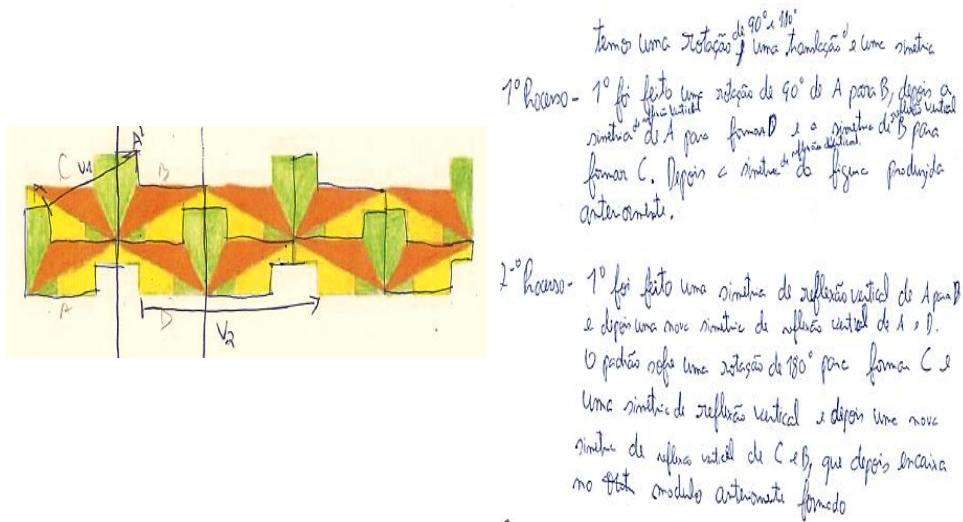 C V1 A' B
A
A D
V2
temos uma rotação de 90° e 180°, uma translação e uma simetria
1º Processo - 1º foi feito uma rotação de 90° de A para B, depois a
simetria de reflexão vertical de A para formar D e a simetria de reflexão vertical de B para
formar C. Depois a simetria de reflexão vertical da figura produzida
anteriormente.
2º Processo - 1º foi feito uma simetria de reflexão vertical de A para B
e depois uma nova simetria de reflexão vertical de A e D.
O padrão sofre uma rotação de 180° para formar C e
uma simetria de reflexão vertical e depois uma nova
simetria de reflexão vertical de C e B, que depois encaixa
no modulo anteriormente formado